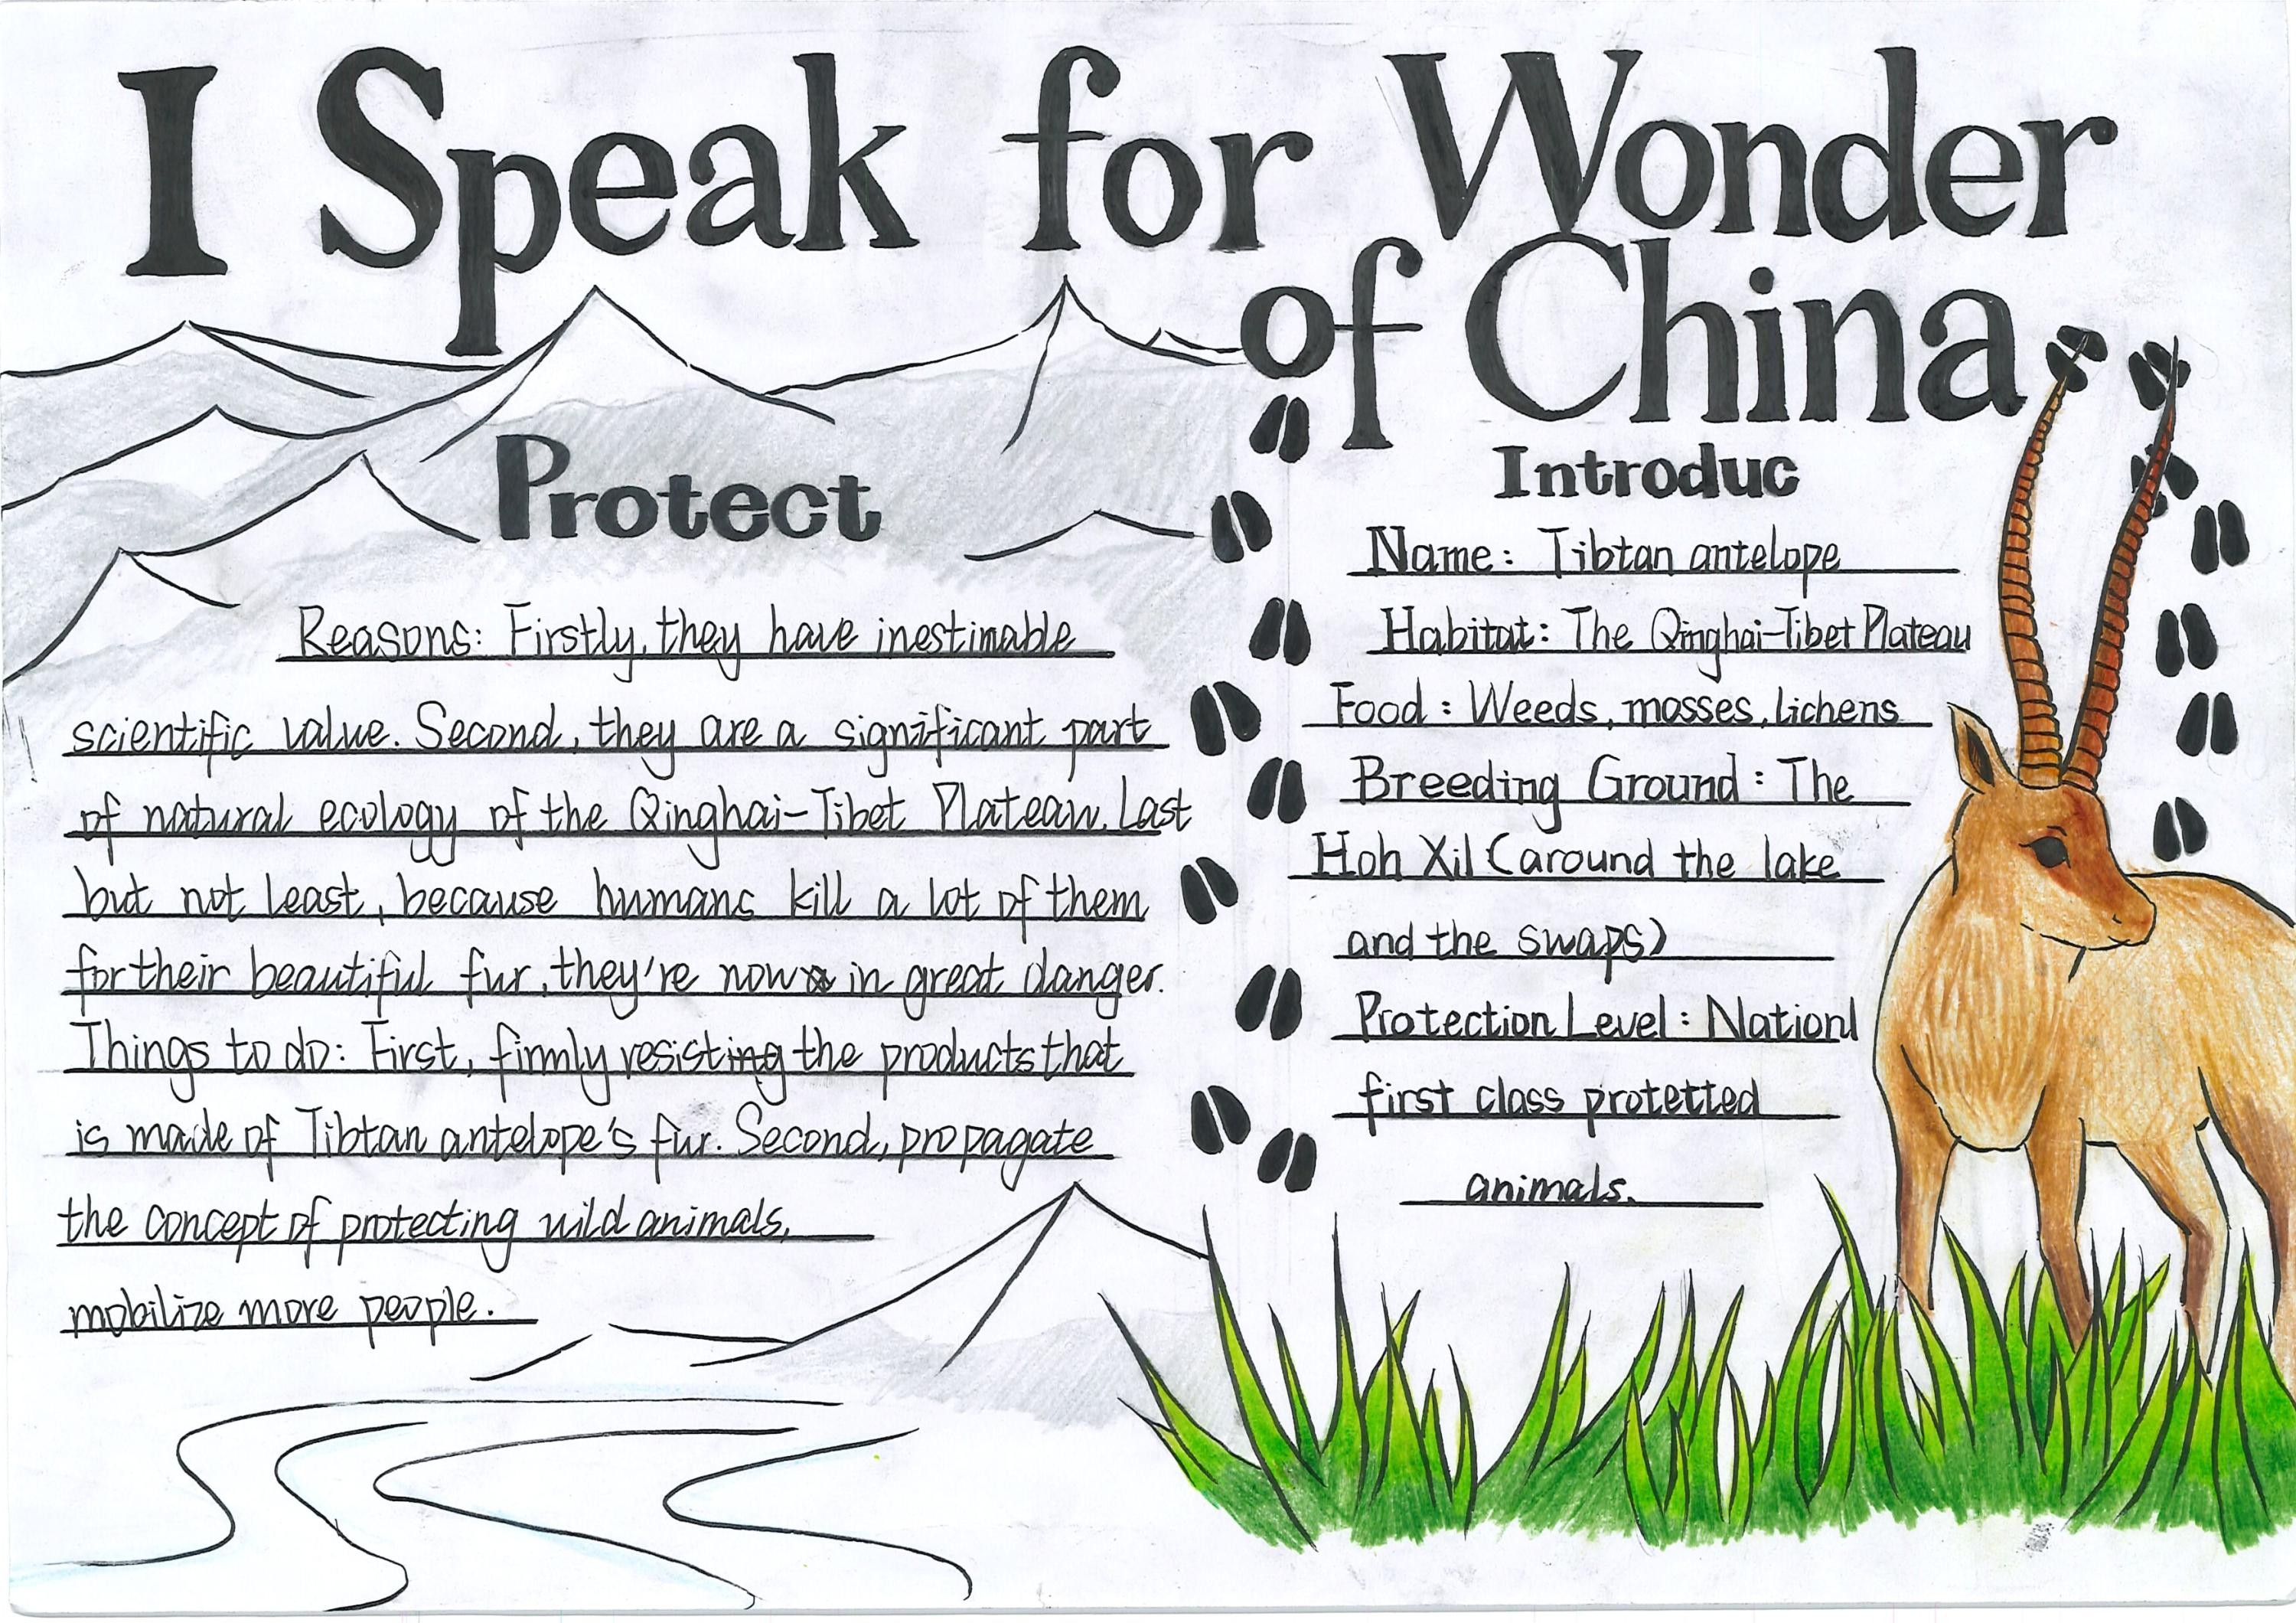 I Speak for Wonder
of China
Protect
Reasons: Firstly, they have inestimable
scientific value. Second, they are a significant part
of natural ecology of the Qinghai-Tibet Plateau. Last
but not least, because humans kill a lot of them
for their beautiful fur, they're now in great danger.
Things to do: First, firmly resisting the products that
is made of Tibtan antelope's fur. Second, propagate
the concept of protecting wild animals,
mobilize more people.
Introduc
Name: Tibtan antelope
Habitat: The Qinghai-Tibet Plateau
Food: Weeds, mosses, lichens
Breeding Ground: The
Hoh Xil (around the lake
and the swaps)
Protection Level: Nationl
first class protetted
animals.